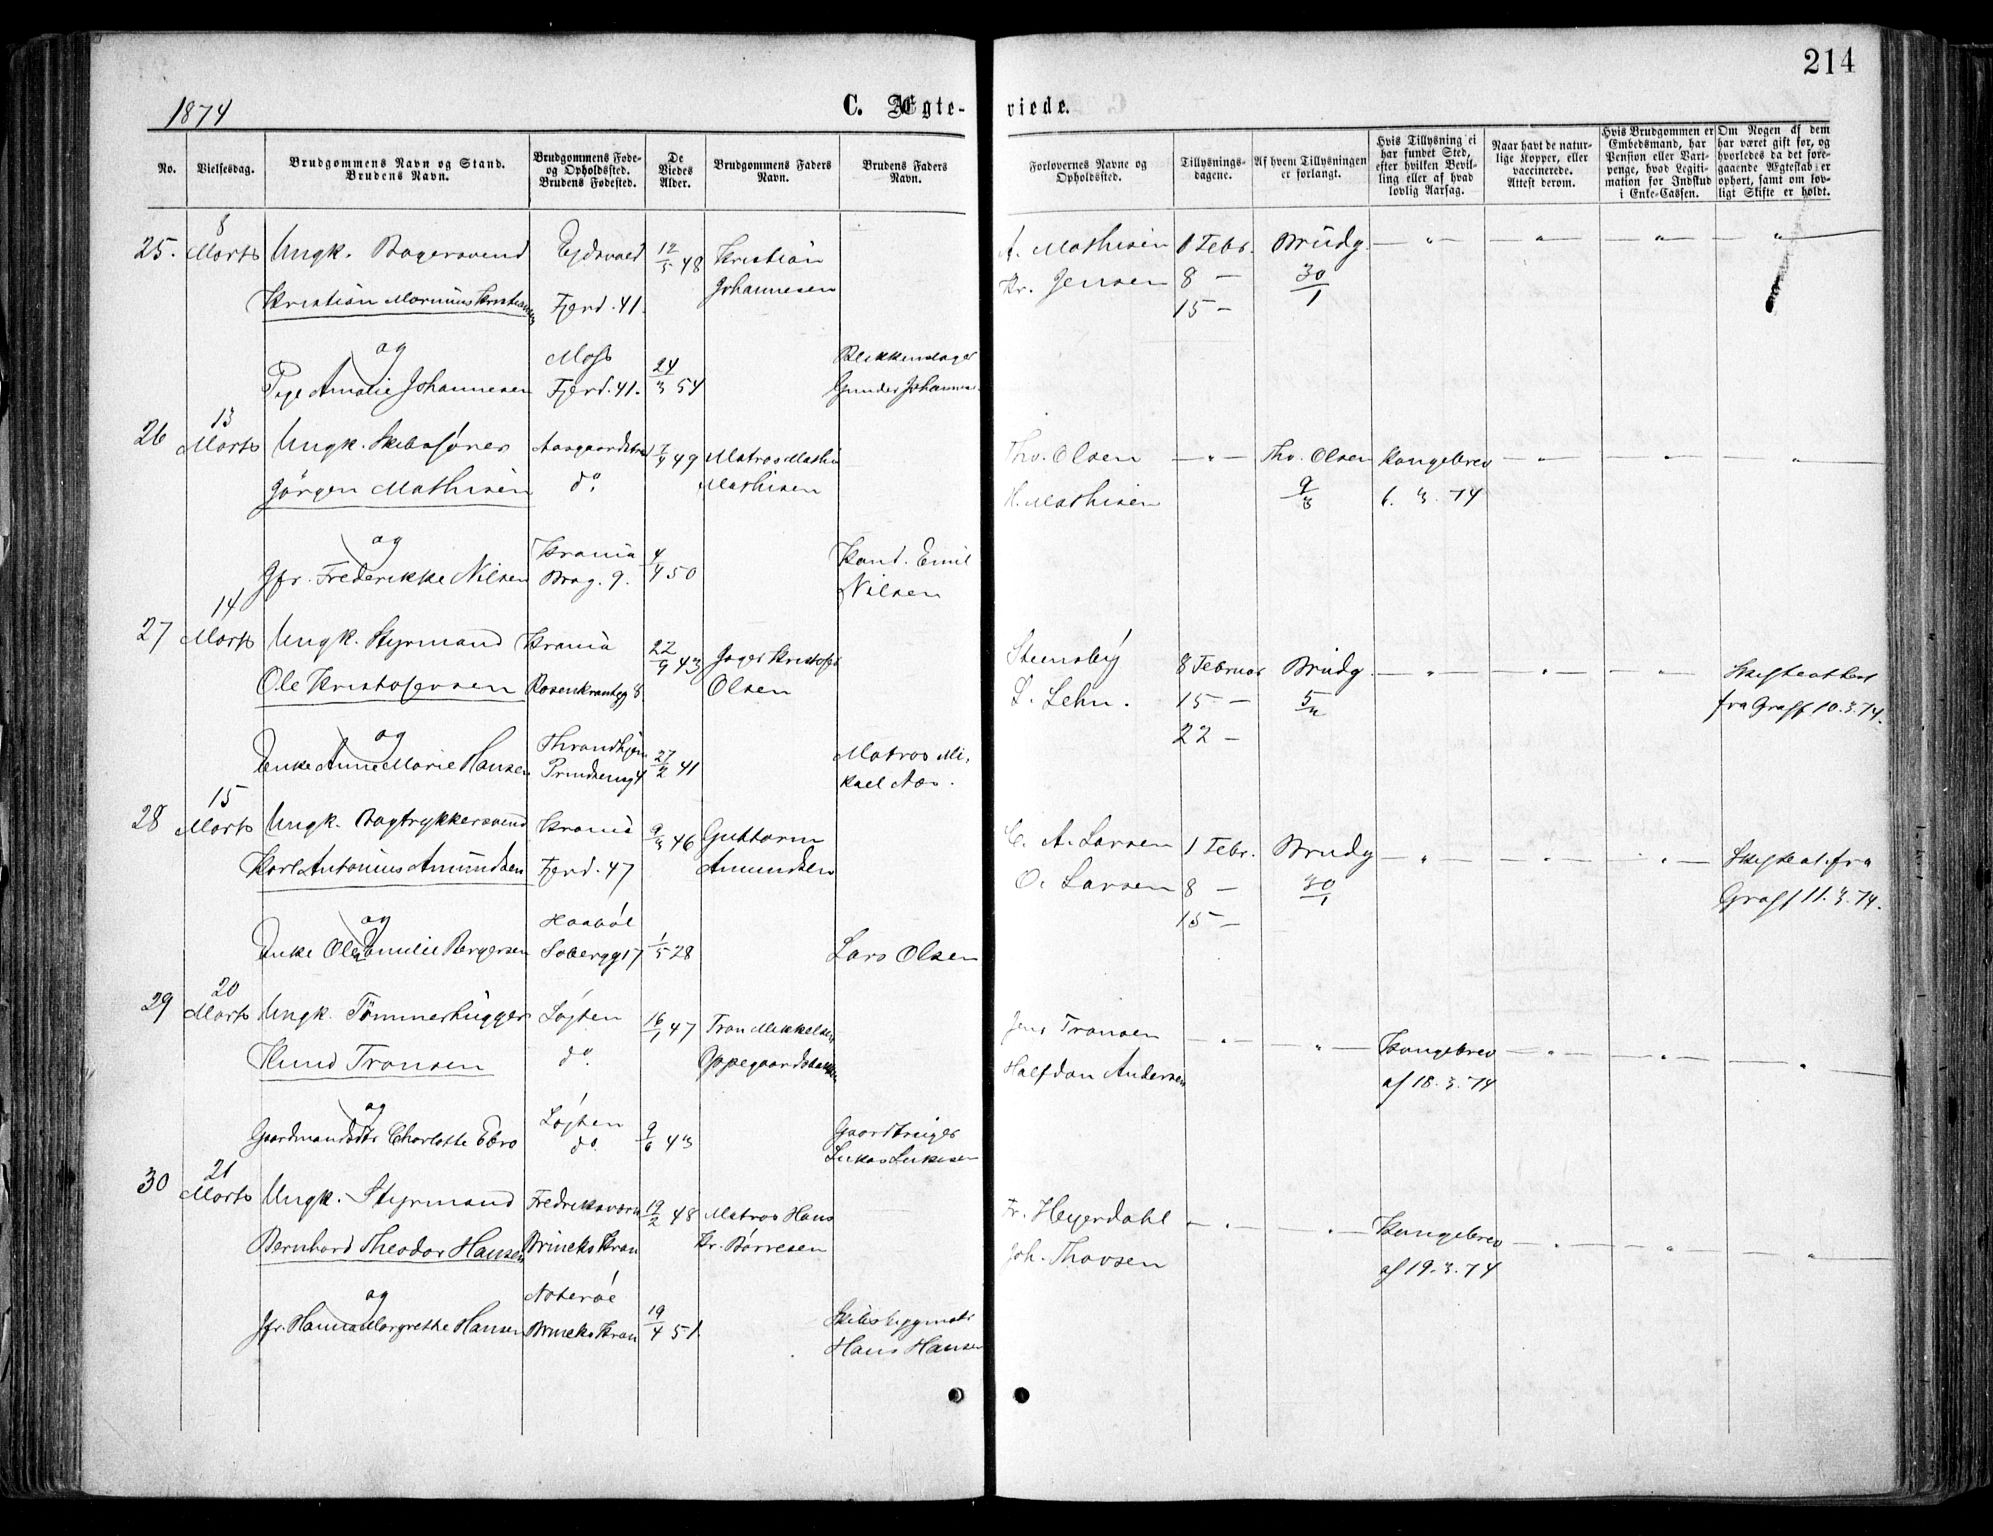 214
1874
C. Ægte-
viede.
No.
Vielsesdag.
Brudgommens Navn og Stand.
Brudens Navn.
Brudgommens Føde-
og Opholdssted.
Brudens Fødested.
De
Viedes
Alder.
Brudgommens Faders
Navn.
Brudens Faders
Navn.
Forlovernes Navne og
Opholdssted.
Tillysnings-
dagene.
Af hvem Tillysningen
er forlangt.
Hvis Tillysning ei
har fundet Sted,
efter hvilken Bevil-
ling eller af hvad
lovlig Aarsag.
Naar havt de natur-
lige Kopper, eller
vaccinerede.
Attest derom.
Hvis Brudgommen er
Embedsmand, har
Pension eller Vart-
penge, hvad Legiti-
mation for Indskud
i Enke-Cassen.
Om Nogen af dem
har været gift før, og
hvorledes da det fore-
gaaende Ægteskab er
ophørt, samt om lov-
ligt Skifte er holdt.
25. 8 Marts Ungk. Bagersvend Ejdsvold 12/5 48 Kristian A. Mathisen 1 Febr. Brudg. — " — " — " — "
Kristian Marinius Kristiansen Fjerd. 41. Johannesen Kr. Jensen 8 — 30/1
15 —
og Moss Blikkenslager
Pige Amalie Johannesen Fjerd. 41. 24/3 54 Gunder Johannes
26 13 Marts Ungk. Skibsfører Aasgaardstrand 17/4 49 Matros Mathi Thv. Olsen — " — Thv. Olsen Kongebrev — " — " — "
Jørgen Mathisen do. Mathisen H. Mathisen 9/3 6. 3. 74
og Krania 4/4 50 Kand. Emil
Jfr. Frederikke Nilsen Brog. 9. Nilsen
27 14 Marts Ungk. Styrmand Krania 22/9 43 Jager Kristofer Steensby 8 Februar Brudg. — " — " — " — Skifteattest
Ole Kristofersen Rosenkrantzg 8 Olsen L. Lehn. 15 — 5/2 fra Graff 10.3.74.
22 —
og Throndhjem Matros Mi-
Enke Anne Marie Hansen Prindsensg 4 27/2 41 kael Aas.
28 15 Marts Ungk. Bogtrykkersvend Krania 9/3 46 Guttorm C. A. Larsen 1 Febr. Brudg — " — " — " — Skifteat. fra
Karl Antonius Amundsen Fjerd. 47 Amundsen O. Larsen 8 — 30/1 Graff 11.3.74.
15 —
og Haabøl
Enke Olea Emilie Bergersen Sobergg 17 1/5 28 Lars Olsen
29 20 Marts Ungk. Tømmerhugger Løjten 16/1 47 Tron Mikkelsen Jens Tronsen — " — " — Kongebrev — " — " — "
Knud Tronsen do. Oppegaardsbakken Halfdan Andersen af 18.3.74
og Løjten Gaardbruger
Gaardmandsdtr Charlotte Ebro do. 9/6 43 Lukas Lukasen
30 21 Marts Ungk. Styrmand Fredriksværn 19/2 48 Matros Hans Fr. Heyerdahl — " — " — Kongebrev — " — " — "
Bernhard Theodor Hansen Brincks Kran Kr. Børresen Joh. Thovsen af 19.3.74
og Nøterøe
Jfr. Hanna Margrethe Hansen Brincks Kran 19/4 51. Skibsbygmstr
Hans Hansen